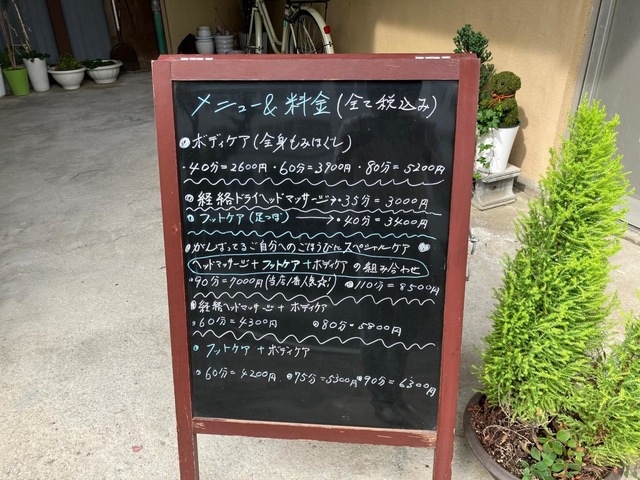 メニュー&料金(全て税込み)
ボディケア(全身もみほぐし)
・40分=2600円・60分=3900円・80分=5200円
経絡ドライヘッドマッサージ→35分=3000円
フットケア(足つぼ)→・40分=3400円
がんばってるご自分へのごほうびにスペシャルケア
ヘッドマッサージ+フットケア+ボディケアの組み合わせ
90分=7000円(当店1番人気☆)110分=8500円
経絡ヘッドマッサージ+ボディケア
60分=4300円 80分=5800円
フットケア+ボディケア
60分=4200円 75分=5300円 90分=6300円